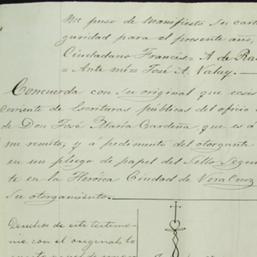 Me puso de manifiesto su cart
guridad para el presente año,
Ciudadano Francisco A. de Ra
= Ante mi = José A. Valay. =
Concuerda con su original que exis
corriente de Escrituras públicas del oficio
de Don José María Cardeña que es á
me remito, y á pedimento del otorgante
en un pliego de papel del Sello Segun
te en la Heróica Ciudad de Vera Cruz
Su otorgamiento.
Derechos de este testimo
nio con el original